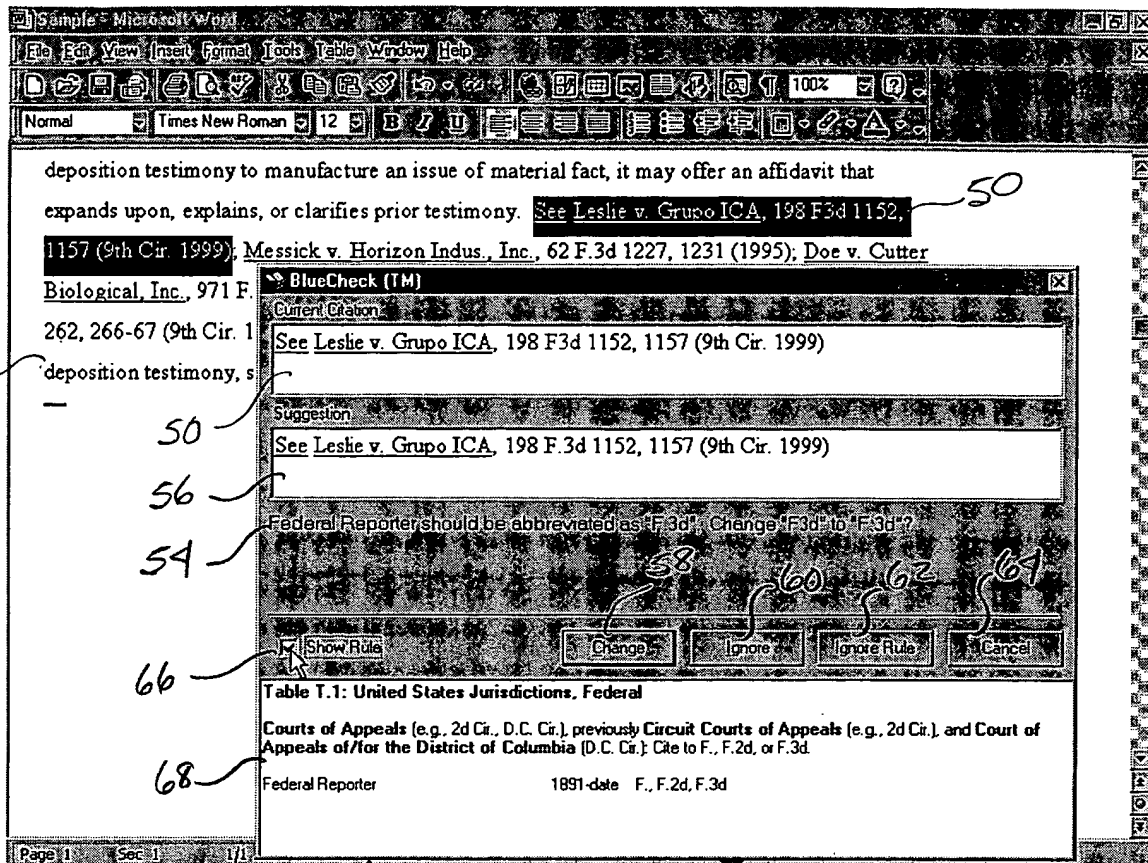 Sample - Microsoft Word
File Edit View Insert Format Tools Table Window Help
100%
Normal Times New Roman 12 B I U A
deposition testimony to manufacture an issue of material fact, it may offer an affidavit that
expands upon, explains, or clarifies prior testimony. See Leslie v. Grupo ICA, 198 F3d 1152,
50
1157 (9th Cir. 1999); Messick v. Horizon Indus., Inc., 62 F.3d 1227, 1231 (1995); Doe v. Cutter
Biological, Inc., 971 F.
262, 266-67 (9th Cir. 1
deposition testimony, s
BlueCheck (TM)
Current Citation
See Leslie v. Grupo ICA, 198 F3d 1152, 1157 (9th Cir. 1999)
50
Suggestion
See Leslie v. Grupo ICA, 198 F.3d 1152, 1157 (9th Cir. 1999)
56
Federal Reporter should be abbreviated as "F.3d". Change "F3d" to "F.3d"?
54
58 60 62 64
Show Rule Change Ignore Ignore Rule Cancel
66
Table T.1: United States Jurisdictions, Federal
Courts of Appeals (e.g., 2d Cir., D.C. Cir.), previously Circuit Courts of Appeals (e.g., 2d Cir.), and Court of
Appeals of/for the District of Columbia (D.C. Cir.): Cite to F., F.2d, or F.3d.
68
Federal Reporter 1891-date F., F.2d, F.3d
Page 1 Sec 1 1/1